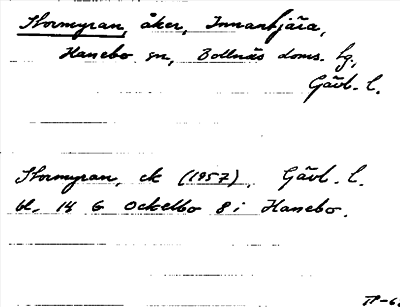 Stormyran, åker, Innantjära,
Hanebo sn, Bollnäs doms. tg.,
Gävl. l.
Stormyran, ek (1957), Gävl. l.
bl. 14 G Ockelbo 8 i Hanebo.
TP-6